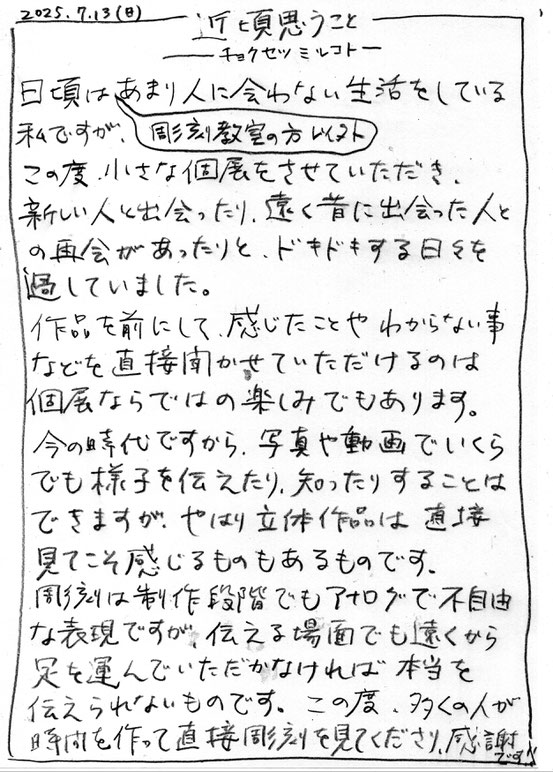 2025.7.13(日)
近頃思うこと
チョクセツミルコト
日頃はあまり人に会わない生活をしている
私ですが、彫刻教室の方以外ト
この度、小さな個展をさせていただき、
新しい人と出会ったり、遠く昔に出会った人と
の再会があったりと、ドキドキする日々を
過していました。
作品を前にして、感じたことやわからない事
などを直接聞かせていただけるのは
個展ならではの楽しみでもあります。
今の時代ですから、写真や動画でいくら
でも様子を伝えたり、知ったりすることは
できますが、やはり立体作品は直接
見てこそ感じるものもあるものです。
彫刻は制作段階でもアナログで不自由
な表現ですが、伝える場面でも遠くから
足を運んでいただかなければ本当を
伝えられないものです。この度、多くの人が
時間を作って直接彫刻を見てくださり、感謝
です!!